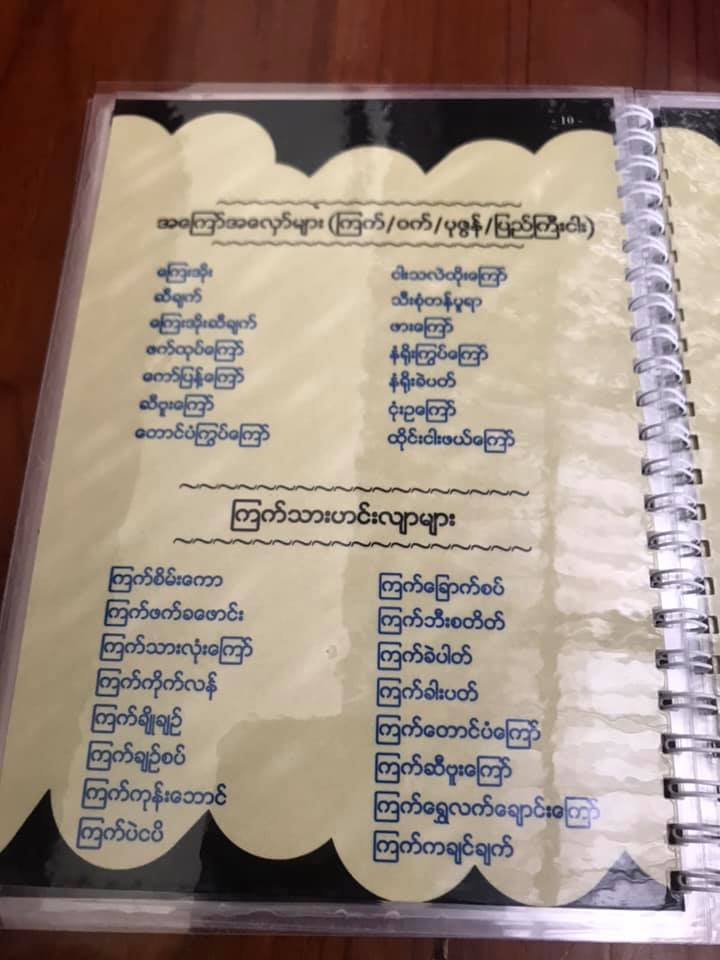 10
အကြော်အလှော်များ (ကြက်/ဝက်/ပုဇွန်/ပြည်ကြီးငါး)
ကြေးအိုး
ဆီချက်
ကြေးအိုးဆီချက်
ဖက်ထုပ်ကြော်
ကော်ပြန့်ကြော်
ဆီဗူးကြော်
တောင်ပံကြွပ်ကြော်
ငါးသလဲထိုးကြော်
သီးစုံတန်ပူရာ
ဖားကြော်
နံရိုးကြွပ်ကြော်
နံရိုးခဲပတ်
ငုံးဥကြော်
ထိုင်းငါးဖယ်ကြော်
ကြက်သားဟင်းလျာများ
ကြက်စိမ်းကော
ကြက်ဖက်ခဖောင်း
ကြက်သားလုံးကြော်
ကြက်ကိုက်လန်
ကြက်ချိုချဉ်
ကြက်ချဉ်စပ်
ကြက်ကုန်းဘောင်
ကြက်ပဲငပိ
ကြက်ခြောက်စပ်
ကြက်ဘီးစတိတ်
ကြက်ခဲပါတ်
ကြက်ခါးပတ်
ကြက်တောင်ပံကြော်
ကြက်ဆီဗူးကြော်
ကြက်ရွှေလက်ချောင်းကြော်
ကြက်ကချင်ချက်